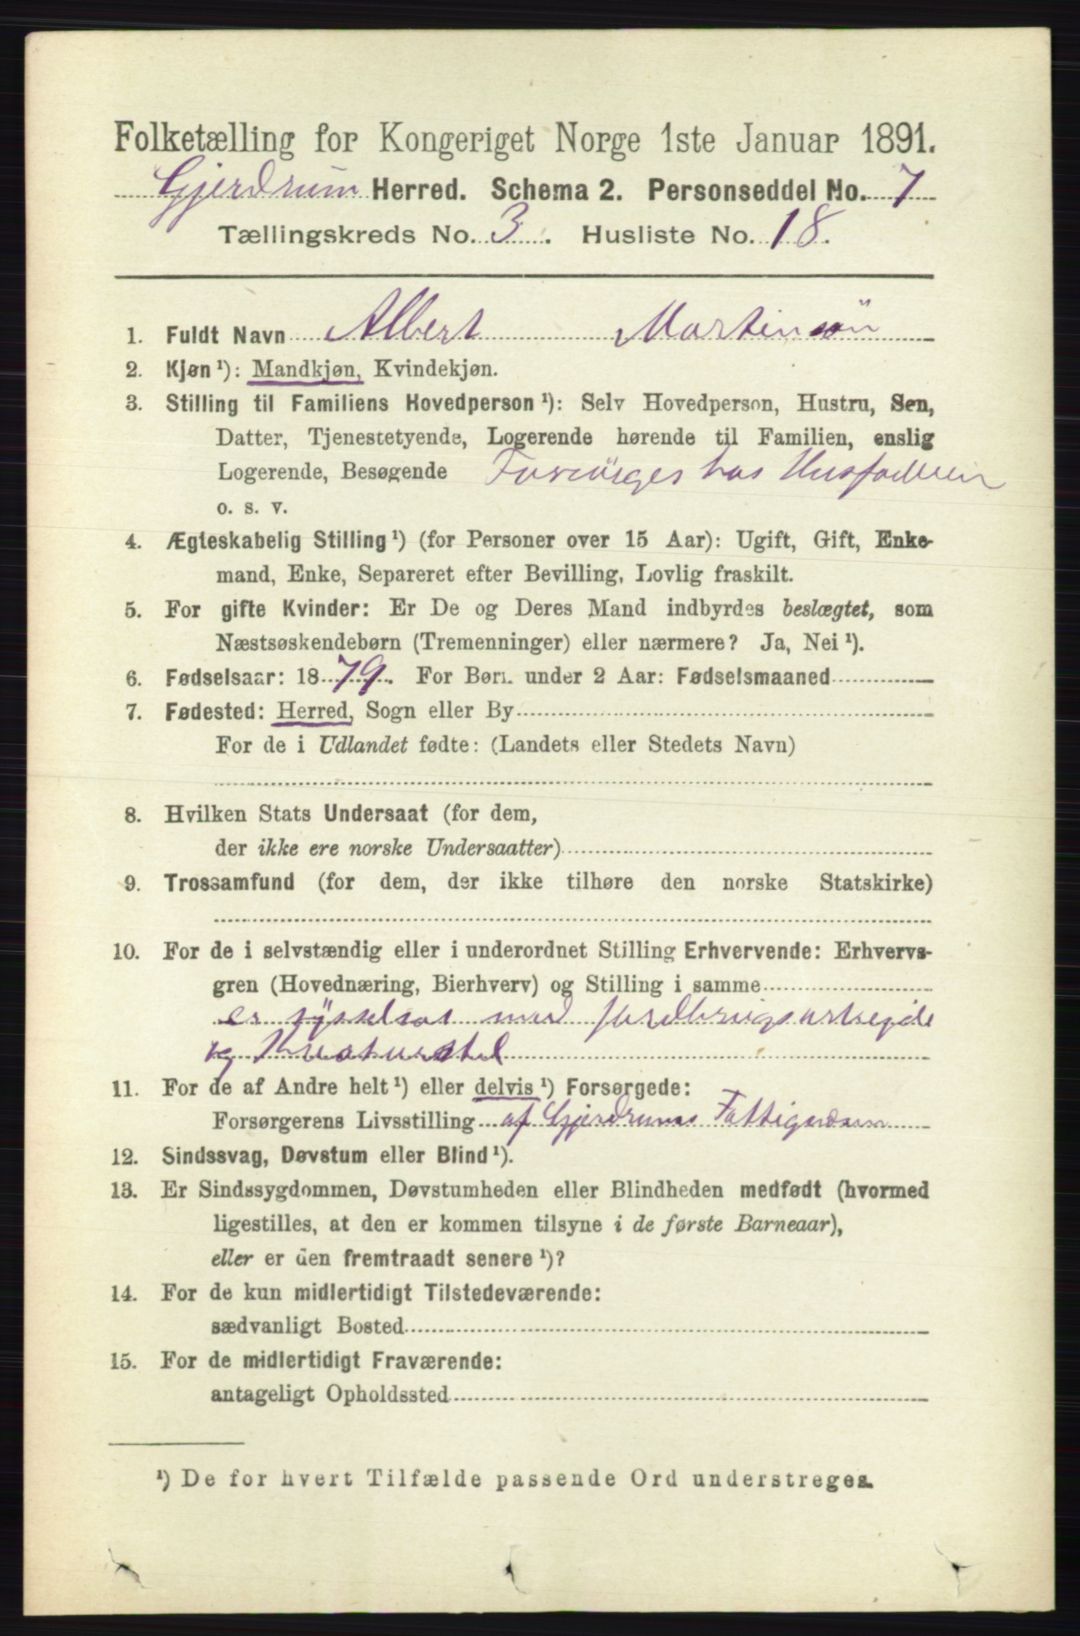 Folketælling for Kongeriget Norge 1ste Januar 1891.
Gjerdrum Herred. Schema 2. Personseddel No. 7
Tællingskreds No. 3. Husliste No. 18.
1. Fuldt Navn Albert Martinsøn
2. Kjøn ¹): Mandkjøn, Kvindekjøn.
3. Stilling til Familiens Hovedperson ¹): Selv Hovedperson, Hustru, Søn,
Datter, Tjenestetyende, Logerende hørende til Familien, enslig
Logerende, Besøgende Forsørges hos Husfaderen
o. s. v.
4. Ægteskabelig Stilling ¹) (for Personer over 15 Aar): Ugift, Gift, Enke-
mand, Enke, Separeret efter Bevilling, Lovlig fraskilt.
5. For gifte Kvinder: Er De og Deres Mand indbyrdes beslægtet, som
Næstsøskendebørn (Tremenninger) eller nærmere? Ja, Nei ¹).
6. Fødselsaar: 1879. For Børn under 2 Aar: Fødselsmaaned
7. Fødested: Herred, Sogn eller By
For de i Udlandet fødte: (Landets eller Stedets Navn)
8. Hvilken Stats Undersaat (for dem,
der ikke ere norske Undersaatter)
9. Trossamfund (for dem, der ikke tilhøre den norske Statskirke)
10. For de i selvstændig eller i underordnet Stilling Erhvervende: Erhvervs-
gren (Hovednæring, Bierhverv) og Stilling i samme
er sysselsat med jordbrugsarbeide
og Kreaturstel
11. For de af Andre helt ¹) eller delvis ¹) Forsørgede:
Forsørgerens Livsstilling af Gjerdrums Fattigvæsen
12. Sindssvag, Døvstum eller Blind ¹).
13. Er Sindssygdommen, Døvstumheden eller Blindheden medfødt (hvormed
ligestilles, at den er kommen tilsyne i de første Barneaar),
eller er den fremtraadt senere ¹)?
14. For de kun midlertidigt Tilstedeværende:
sædvanligt Bosted
15. For de midlertidigt Fraværende:
antageligt Opholdssted
¹) De for hvert Tilfælde passende Ord understreges.